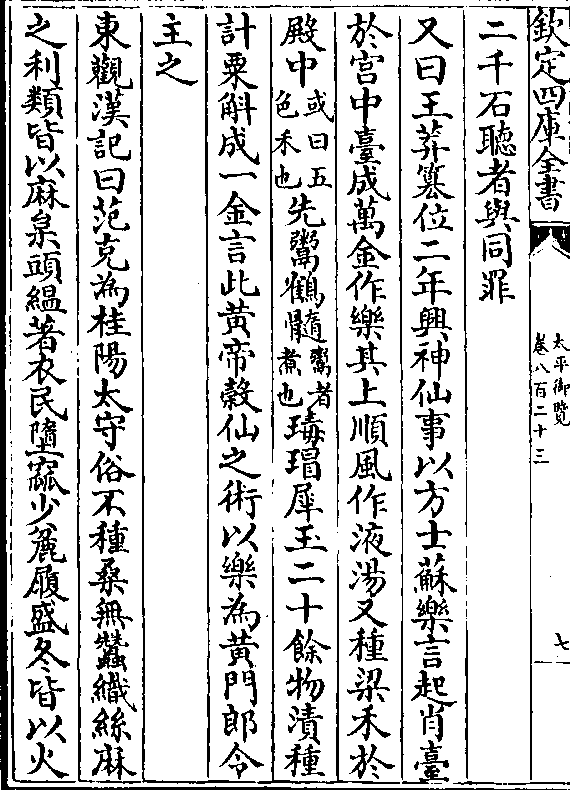 欽定四庫全書
太平御覽
卷八百二十三
七
二千石聽者與同罪
又曰王莽簒位二年興神仙事以方士蘇樂言起肖臺
於宫中臺成萬金作樂其上順風作液湯又種粱禾於
殿中或曰五色禾也先鬻鶴髓鬻者煮也瑇瑁犀玉二十餘物漬種
計粟斛成一金言此黄帝榖仙之術以樂為黄門郎令
主之
東觀漢記曰范充為桂陽太守俗不種桑無蠶織絲麻
之利類皆以麻枲頭緼著衣民墮窳少麄履盛冬皆以火